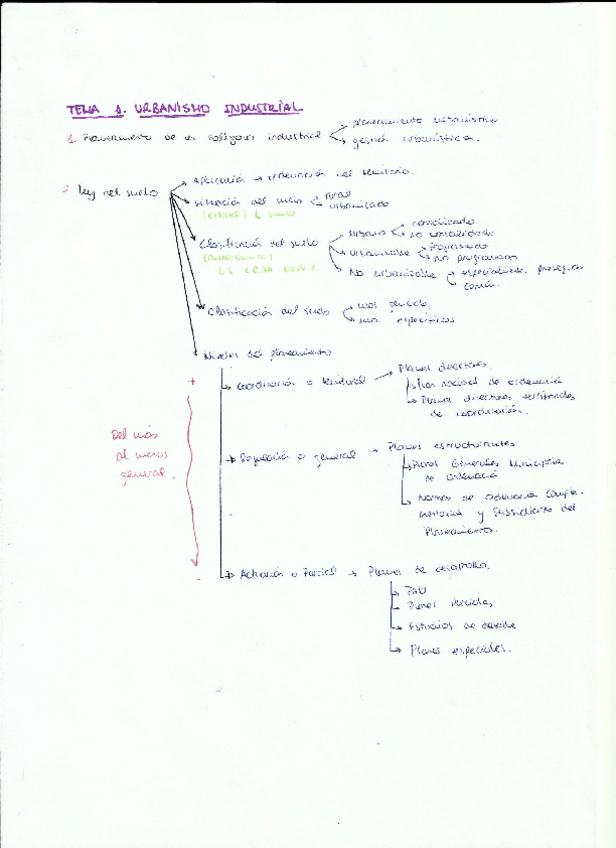 TEMA 1. URBANISMO INDUSTRIAL
1. Planeamiento de un polígono industrial
planeamiento urbanístico
gestión urbanística.
2. Ley del suelo
Aplicación → ordenación del territorio.
Situación del suelo
rural
urbanizado
(estatal) L. suelo
Clasificación del suelo
urbano
consolidado
no consolidado
(autonómico)
urbanizable
Programado
no programado
LS CCAA
No urbanizable
especialmente protegido
común.
Clasificación del suelo
usos generales,
usos específicos
Niveles del planeamiento
+
Del más
al menos
general.
-
→ Coordinación o territorial
→ Planes directores.
Plan nacional de ordenación
→ Planes directores territoriales
de coordinación.
→ Regulación o general → Planes estructurantes
→ Planes Generales Municipales
de ordenación
→ Normas de ordenación Comple-
mentarias y Subsidiarias del
Planeamiento.
→ Actuación o Parcial → Planes de desarrollo,
→ PAU
→ Planes Parciales,
→ Estudios de detalle
→ Planes especiales.